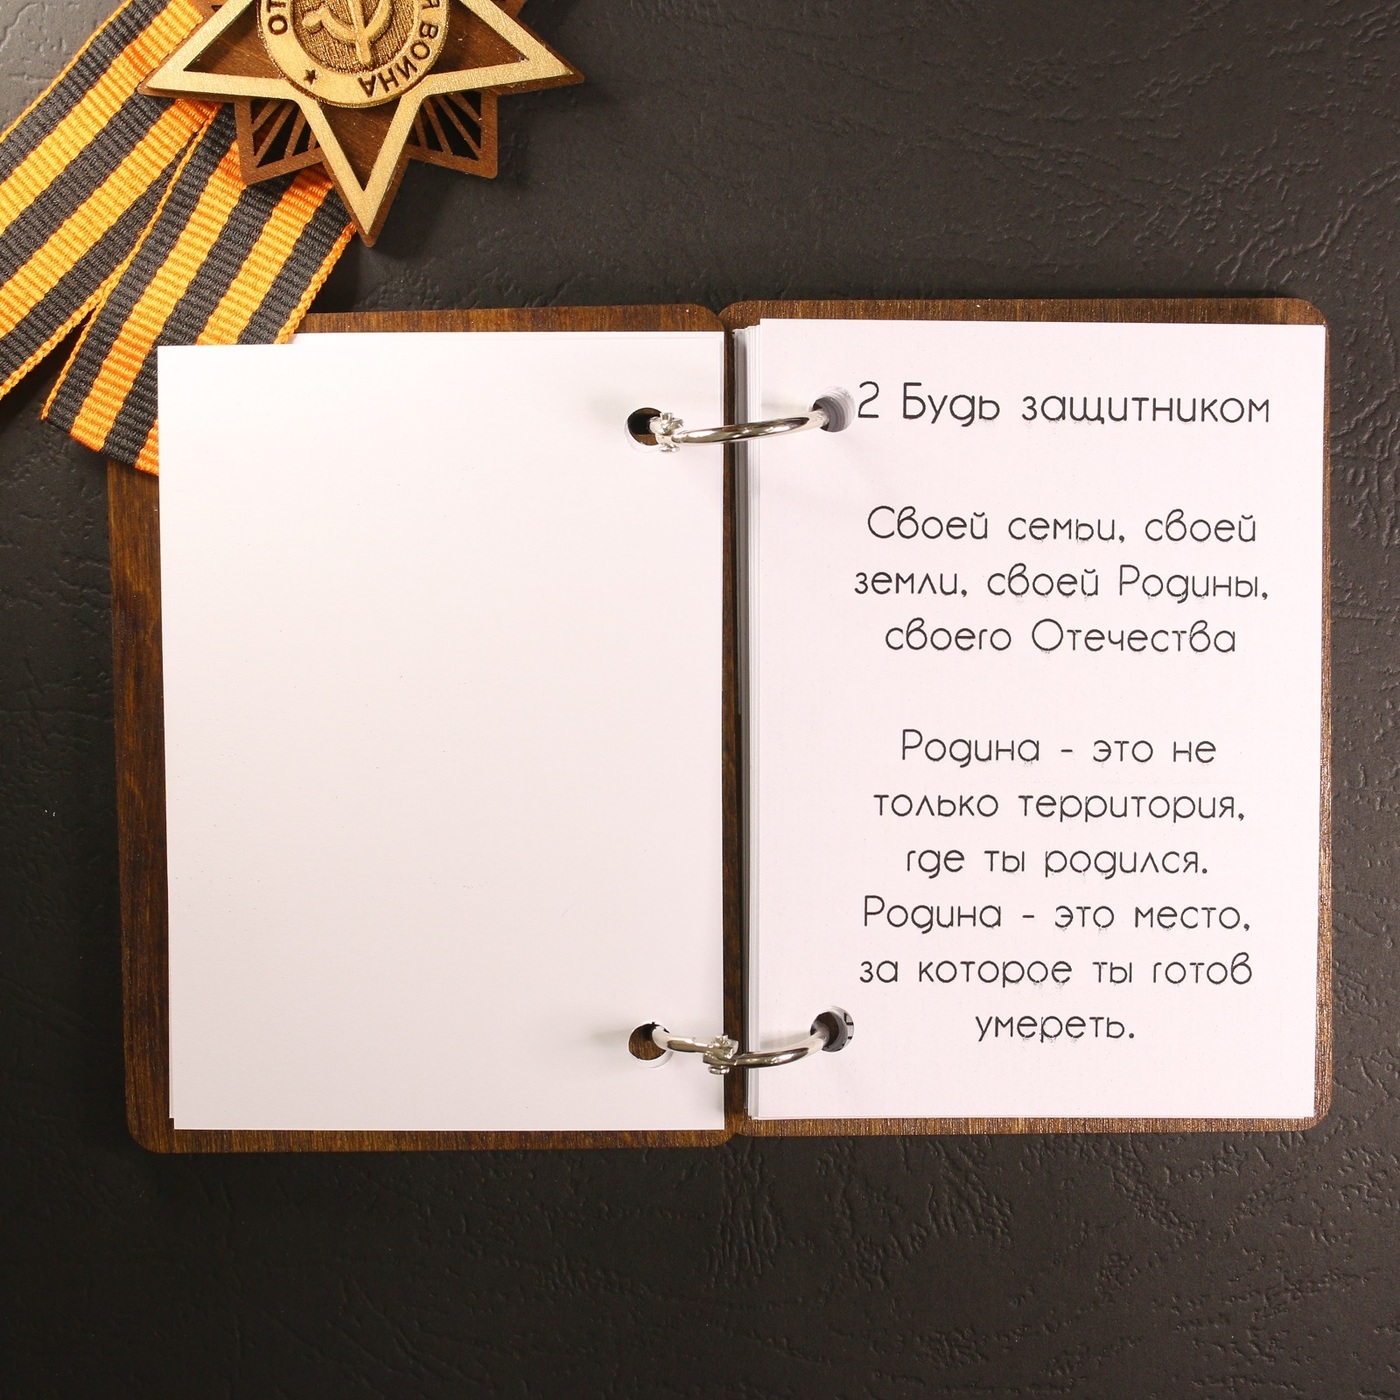 ВОЙНА
2 Будь защитником
Своей семьи, своей
земли, своей Родины,
своего Отечества
Родина - это не
только территория,
где ты родился.
Родина - это место,
за которое ты готов
умереть.